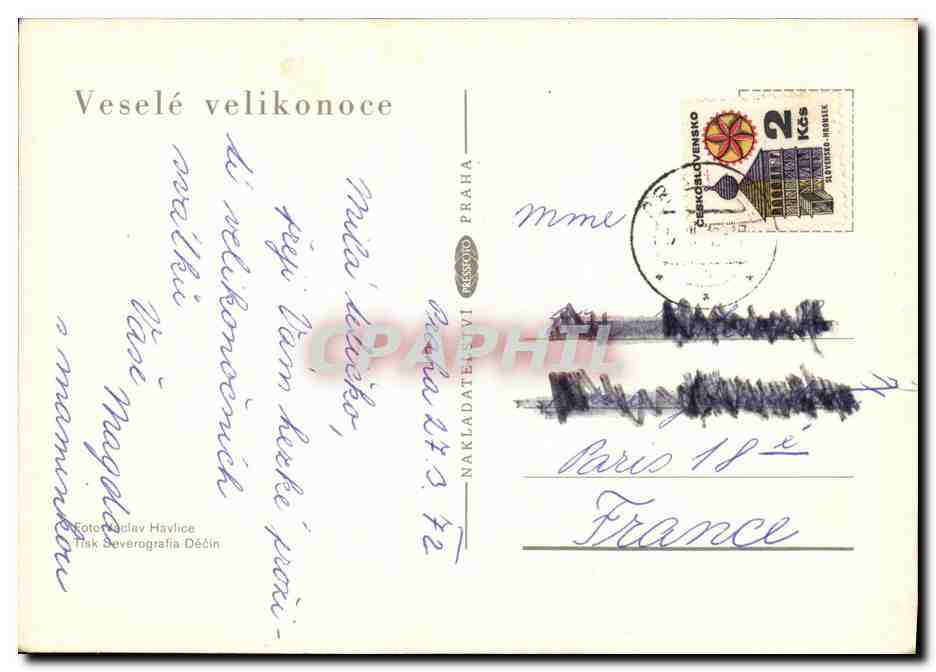 Veselé velikonoce
Praha 27.3.72
Milá tetičko,
přeji Vám hezké proži-
tí velikonočních
svátků
Vaše Magda
s maminkou
Foto Václav Havlice
Tisk Severografia Děčín
NAKLADATELSTVÍ PRESSFOTO PRAHA
ČESKOSLOVENSKO
2 Kčs
SLOVENSKO-HRONSEK
Mme
Paris 18è
France
CPAPHIL